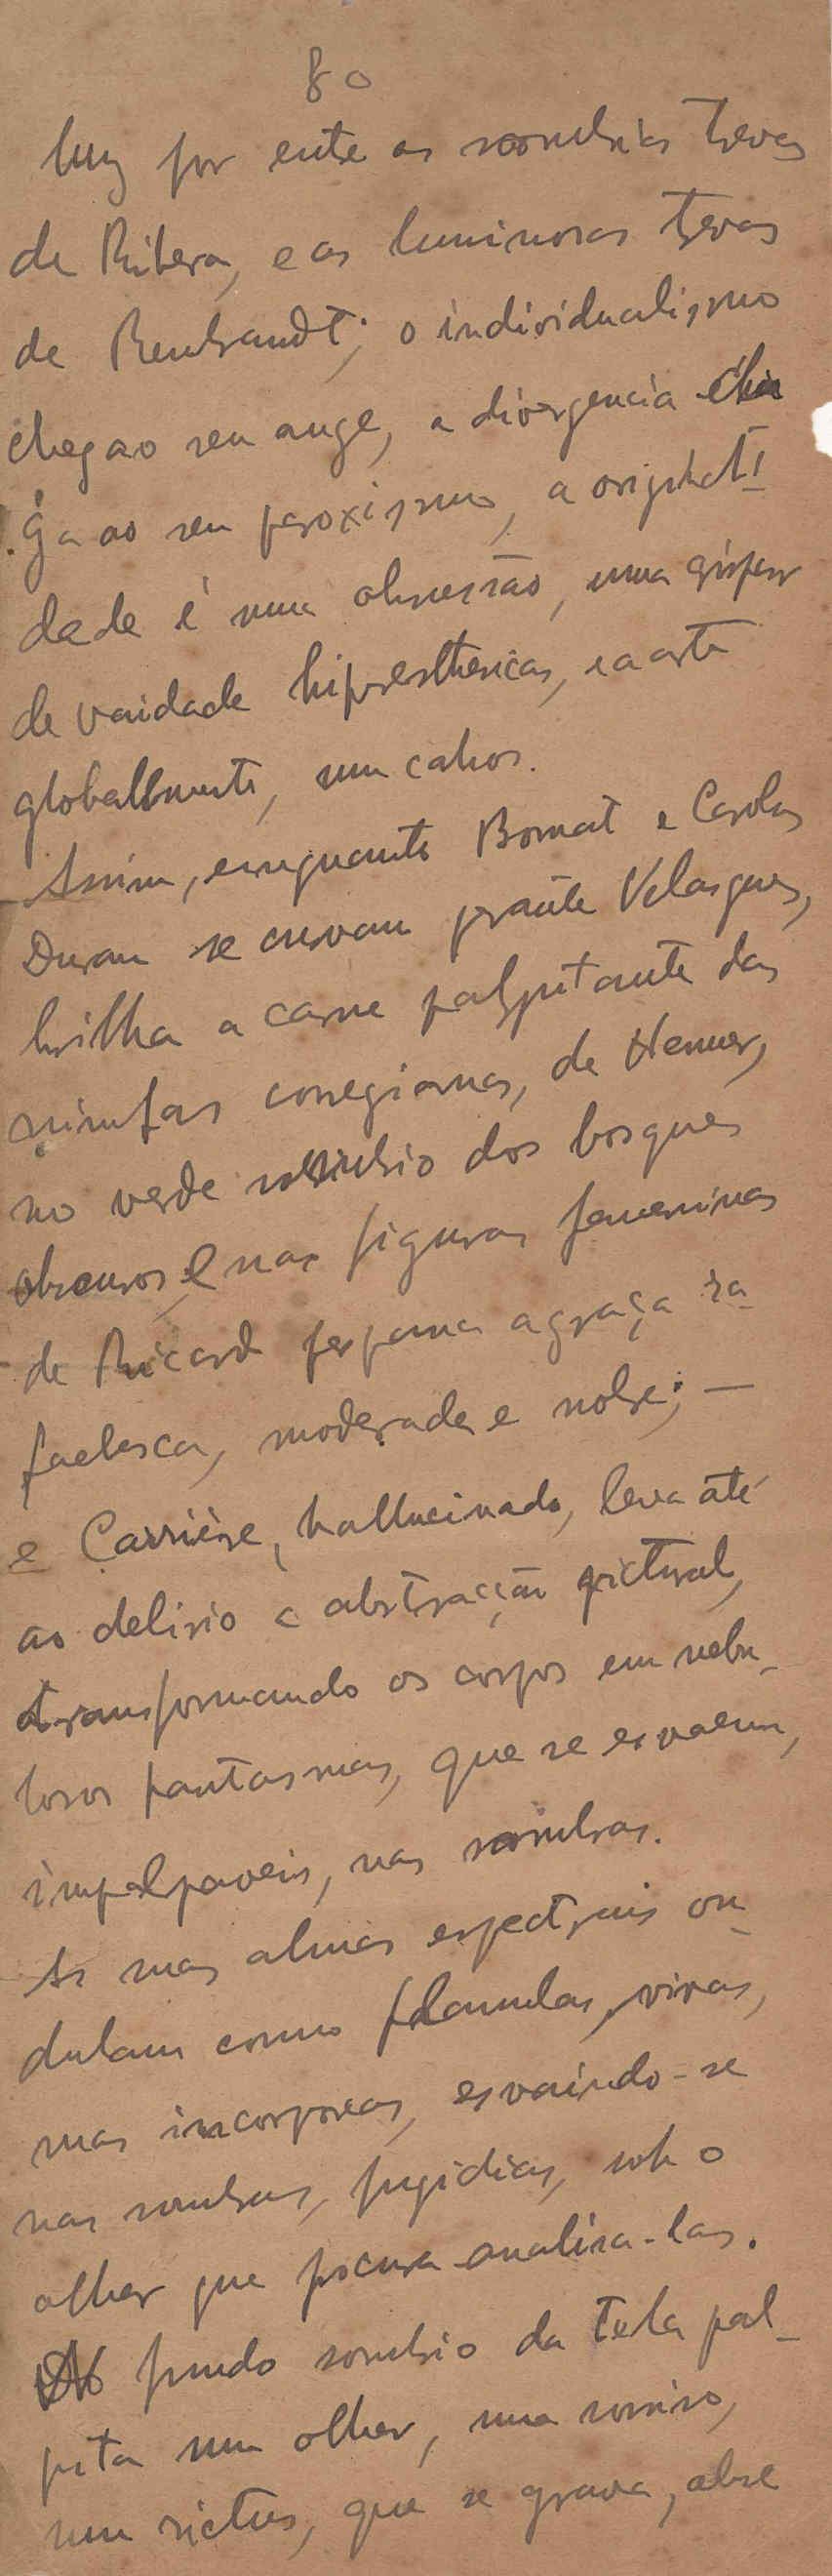 80
luz por entre as sombrias trevas
de Ribera, e as luminosas trevas
de Rembrandt; o individualismo
chega ao seu auge, a divergencia che
ga ao seu paroxismo, a originali
dade é uma obsessão, uma
de vaidade hiperesthesica, e a arte
globalmente, um cahos.
Assim, emquanto Bonnat e Carolus
Duran se curvam prante Velasques,
brilha a carne palpitante das
nimfas corregianas, de Henner,
no verde sombrio dos bosques
obscuros, e nas figuras femeninas
de Ricard perpassa a graça ra
faelesca, moderada e nobre; —
e Carrière, hallucinado, leva até
ao delirio a abstracção pictural,
transformando os corpos em nebu-
losos fantasmas, que se esvaem,
impalpaveis, nas sombras.
As suas almas espectrais on
dulam como flamulas, vivas,
mas incorporeas, esvaindo-se
nas sombras, fugidias, sob o
olhar que procura analisa-las.
No fundo sombrio da tela pal-
pita um olhar, um sorriso,
um rictus, que se grava, abre